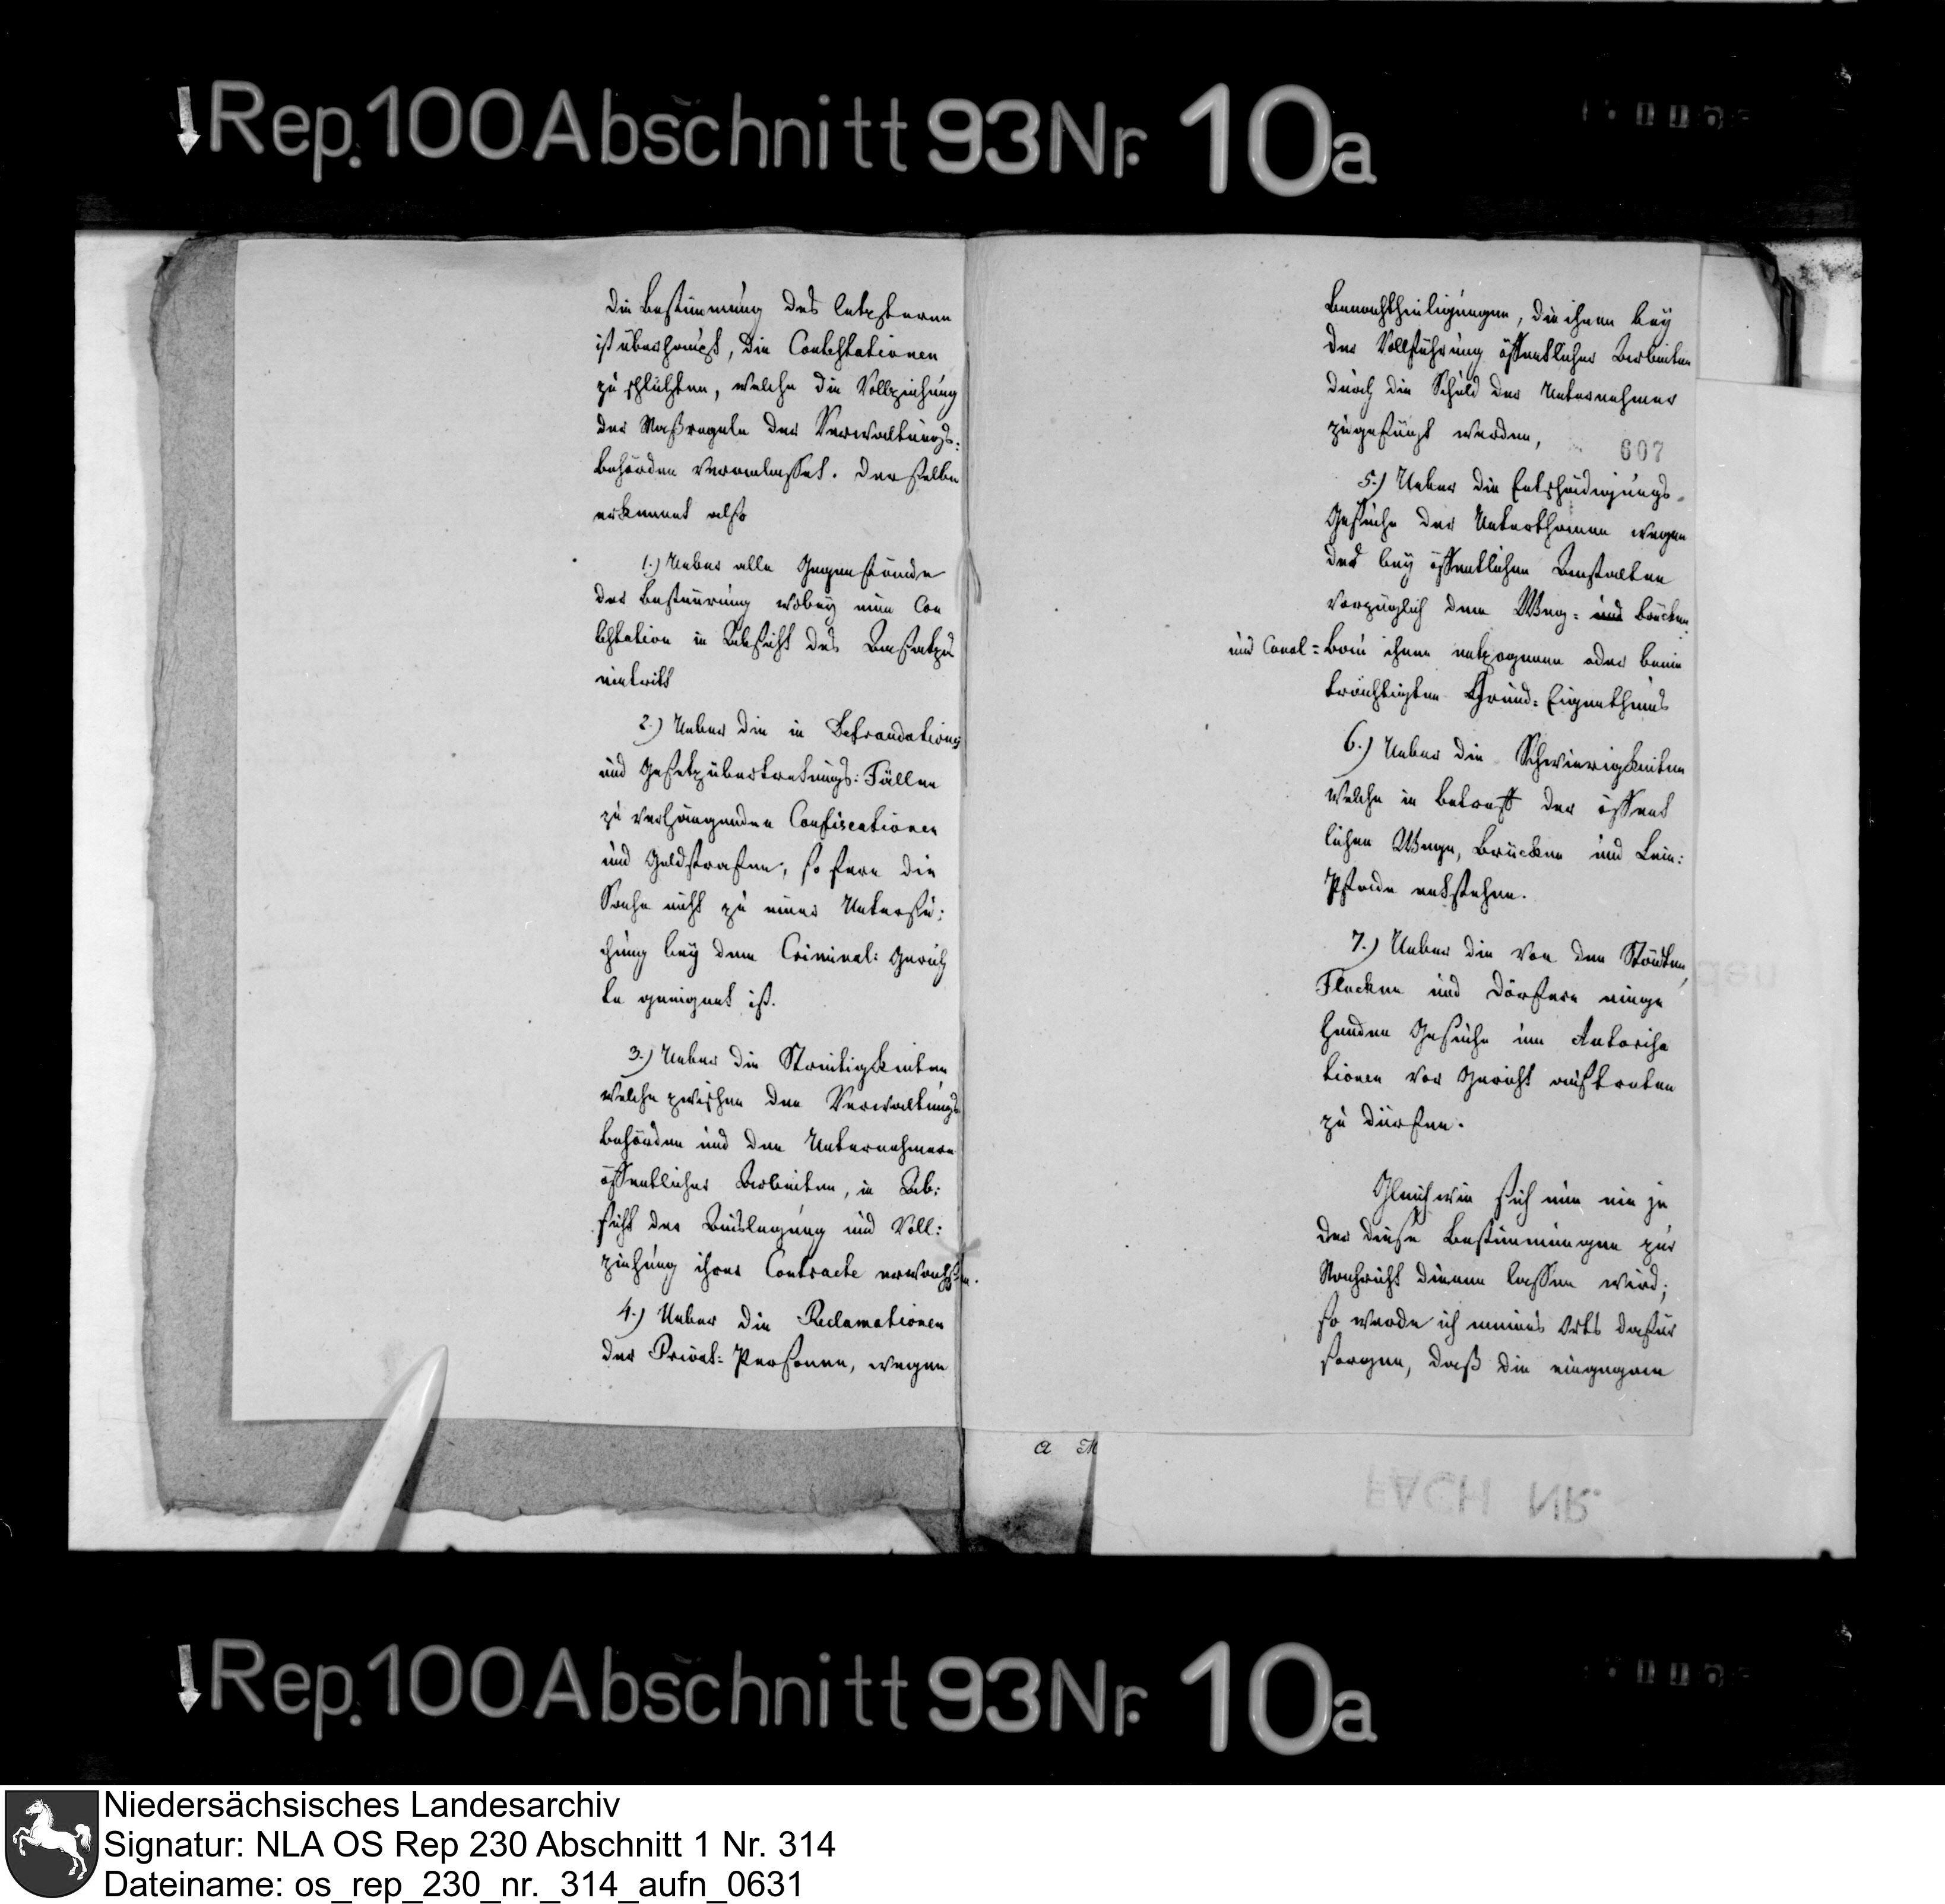 Rep. 100 Abschnitt 93 Nr. 10a
die Bestimmung des letzteren
ist überhaupt, die Contestationen
zu schlichten, welche die Vollziehung
der Maßregeln der Verwaltungs-
behörden veranlasset. Derselbe
erkennet also
1.) Ueber alle Gegenstände
der Besteurung wobey eine Con
testation in Absicht des Ansatzes
eintritt
2.) Ueber die in Defraudations
und Gesetzübertretungs-Fällen
zu verhängenden Confiscationen
und Geldstrafen, so fern die
Sache nicht zu einer Untersu-
chung bey dem Criminal-Gerich
te geeignet ist.
3.) Ueber die Streitigkeiten
welche zwischen den Verwaltungs
behörden und den Unternehmern
öffentlicher Arbeiten, in Ab-
sicht der Auslegung und Voll-
ziehung ihrer Contracte erwachsen.
4.) Ueber die Reclamationen
der Privat-Personen, wegen
Benachtheiligungen, die ihnen bey
der Vollführung öffentlicher Arbeiten
durch die Schuld der Unternehmer
zugefügt werden,
607
5.) Ueber die Entschädigungs-
Gesuche der Unterthanen wegen
des bey öffentlichen Anstalten
vorzüglich dem Weg- und Brücken
und Canal-Bau ihnen entzogenen oder beein
trächtigten Grund-Eigenthums
6.) Ueber die Schwierigkeiten
welche in betreff der öffent
lichen Wege, Brücken und Lein-
Pfade entstehen.
7.) Ueber die von den Städten,
Flecken und Dörfern einge
henden Gesuche um Autorisa
tionen vor Gericht auftreten
zu dürfen.
Gleichwie sich nun ein je
der diese Bestimmungen zur
Nachricht dienen lassen wird;
so werde ich meines Orts dafür
sorgen, daß die eingegan
a M
FACH NR.
Rep. 100 Abschnitt 93 Nr. 10a
Niedersächsisches Landesarchiv
Signatur: NLA OS Rep 230 Abschnitt 1 Nr. 314
Dateiname: os_rep_230_nr._314_aufn_0631